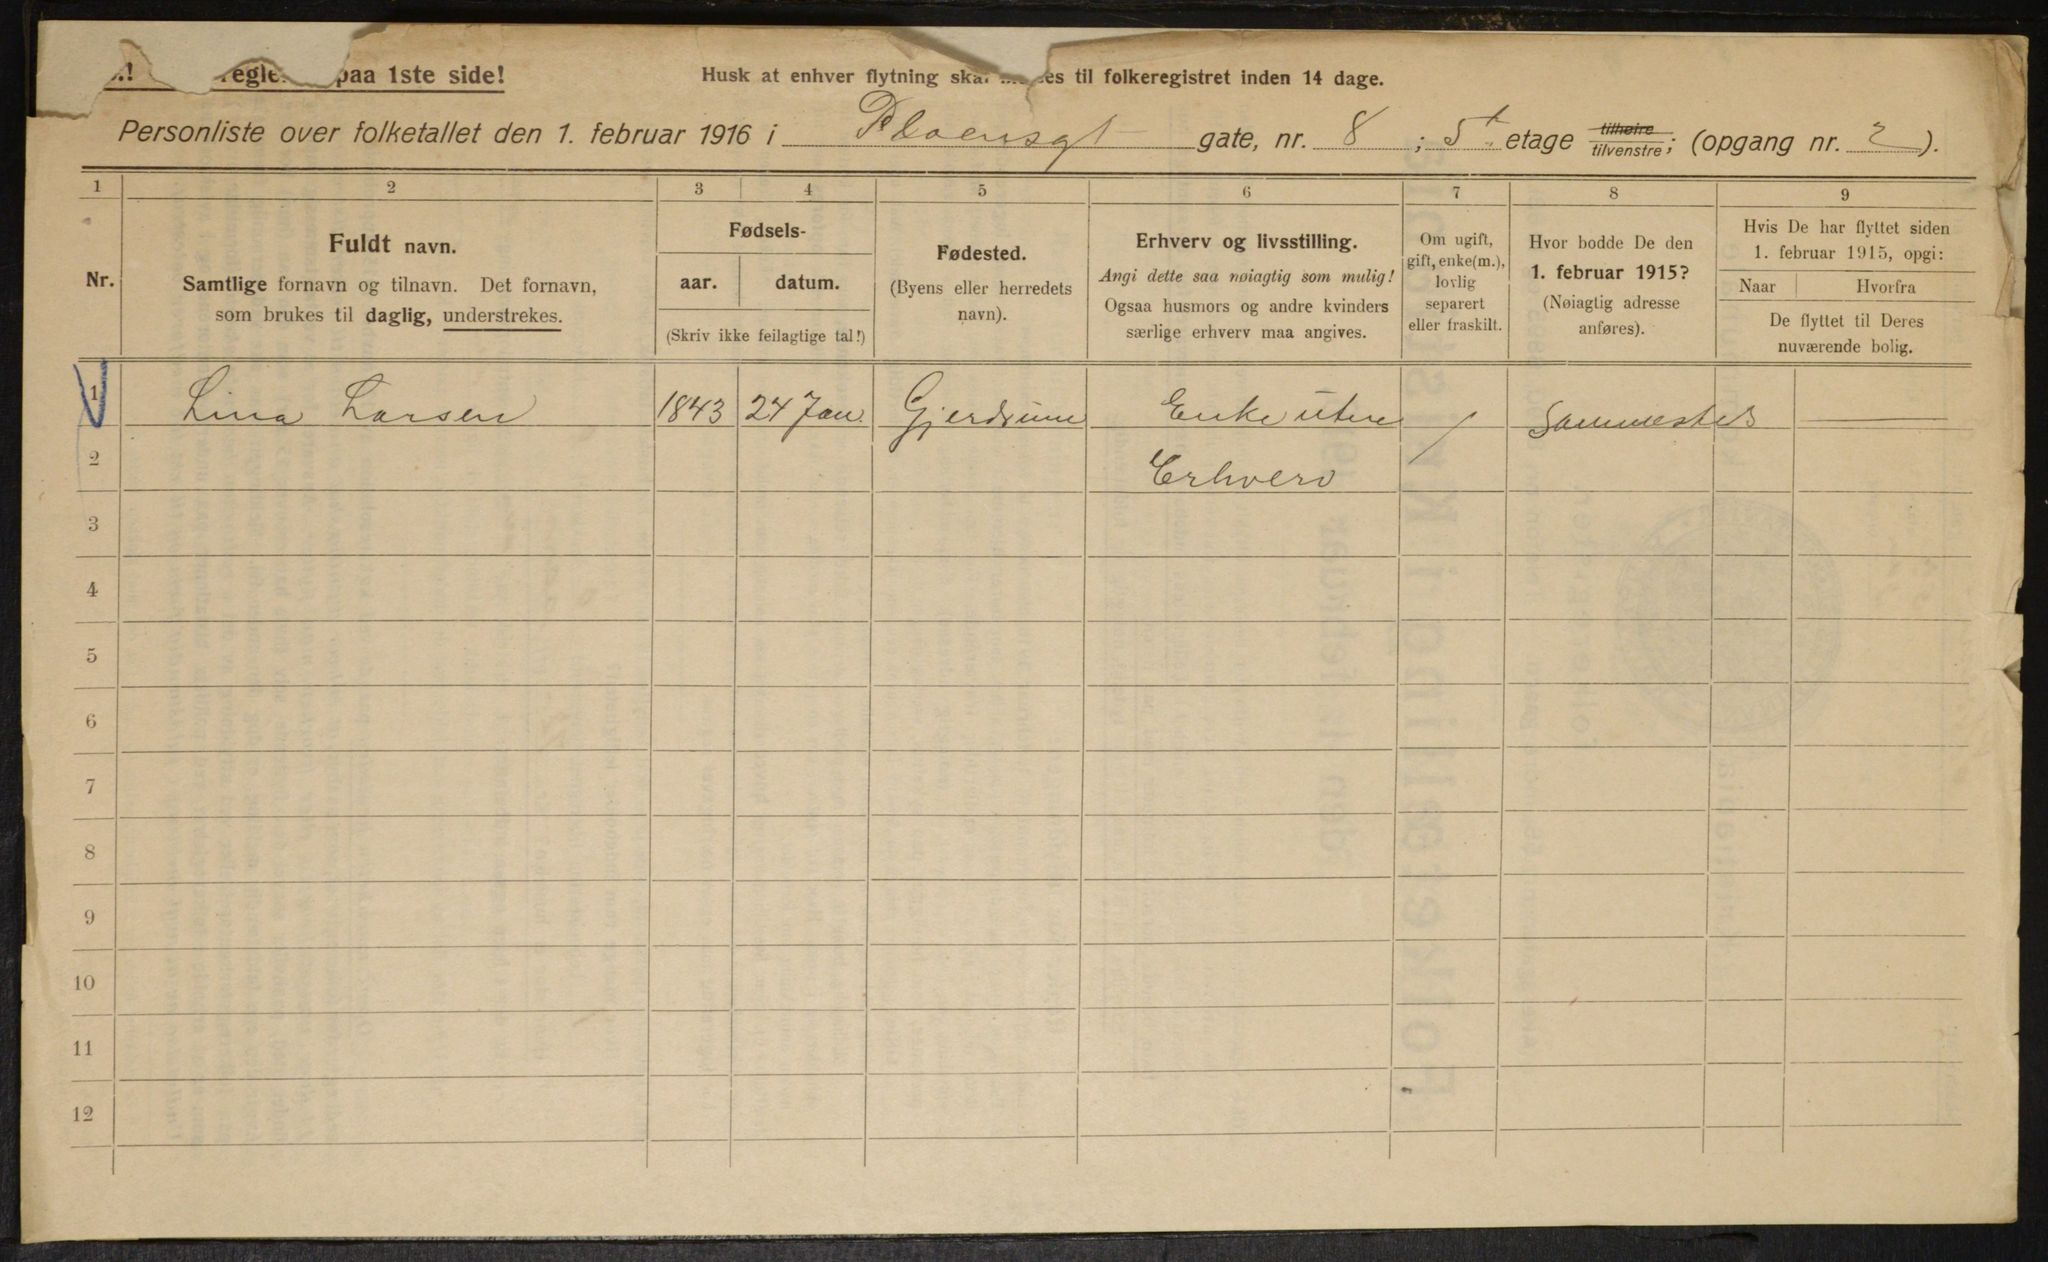 paa 1ste side!
Husk at enhver flytning skal meldes til folkeregistret inden 14 dage.
Personliste over folketallet den 1. februar 1916 i Ploensgt gate, nr. 8 ; 5t. etage tilhøire tilvenstre; (opgang nr. 2).
1 2 3 4 5 6 7 8 9
Nr.
Fuldt navn.
Samtlige fornavn og tilnavn. Det fornavn,
som brukes til daglig, understrekes.
Fødsels-
aar. datum.
(Skriv ikke feilagtige tal!)
Fødested.
(Byens eller herredets
navn).
Erhverv og livsstilling.
Angi dette saa nøiagtig som mulig!
Ogsaa husmors og andre kvinders
særlige erhverv maa angives.
Om ugift,
gift, enke(m.),
lovlig
separert
eller fraskilt.
Hvor bodde De den
1. februar 1915?
(Nøiagtig adresse
anføres).
Hvis De har flyttet siden
1. februar 1915, opgi:
Naar Hvorfra
De flyttet til Deres
nuværende bolig.
1 Lina Larsen 1843 24 Jan. Gjerdrum Enke uten / Sammesteds —
2 Erhverv
3
4
5
6
7
8
9
10
11
12